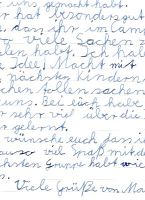 uns gemacht habt.
hat besonders gut
dass ihr im Camp
viele Sachen z
habt. Ich
e Idee! Macht mit
nächsten Kindern
tollen Sachen
uns. Bei euch habe
sehr viel über die
gelernt.
wünsche euch dass i
so viel Spaß mit d
chsten Gruppe habt wie
s.
Viele Grüße von Ma